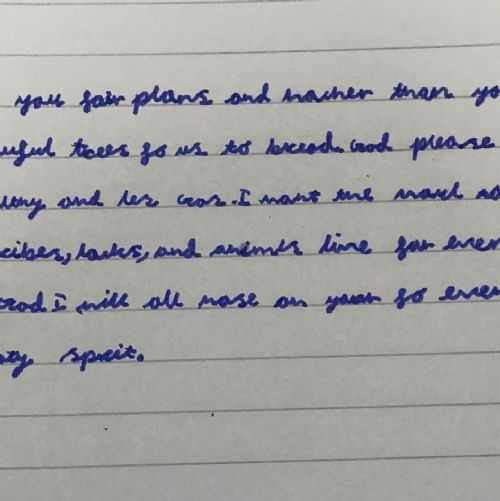 you fair plans and nacher than yo
uful trees fo us to bread. God please
and les cros. I want the
cibes, larks, and animls live for ever
God I will all nase on your fo ever
ty spreit.